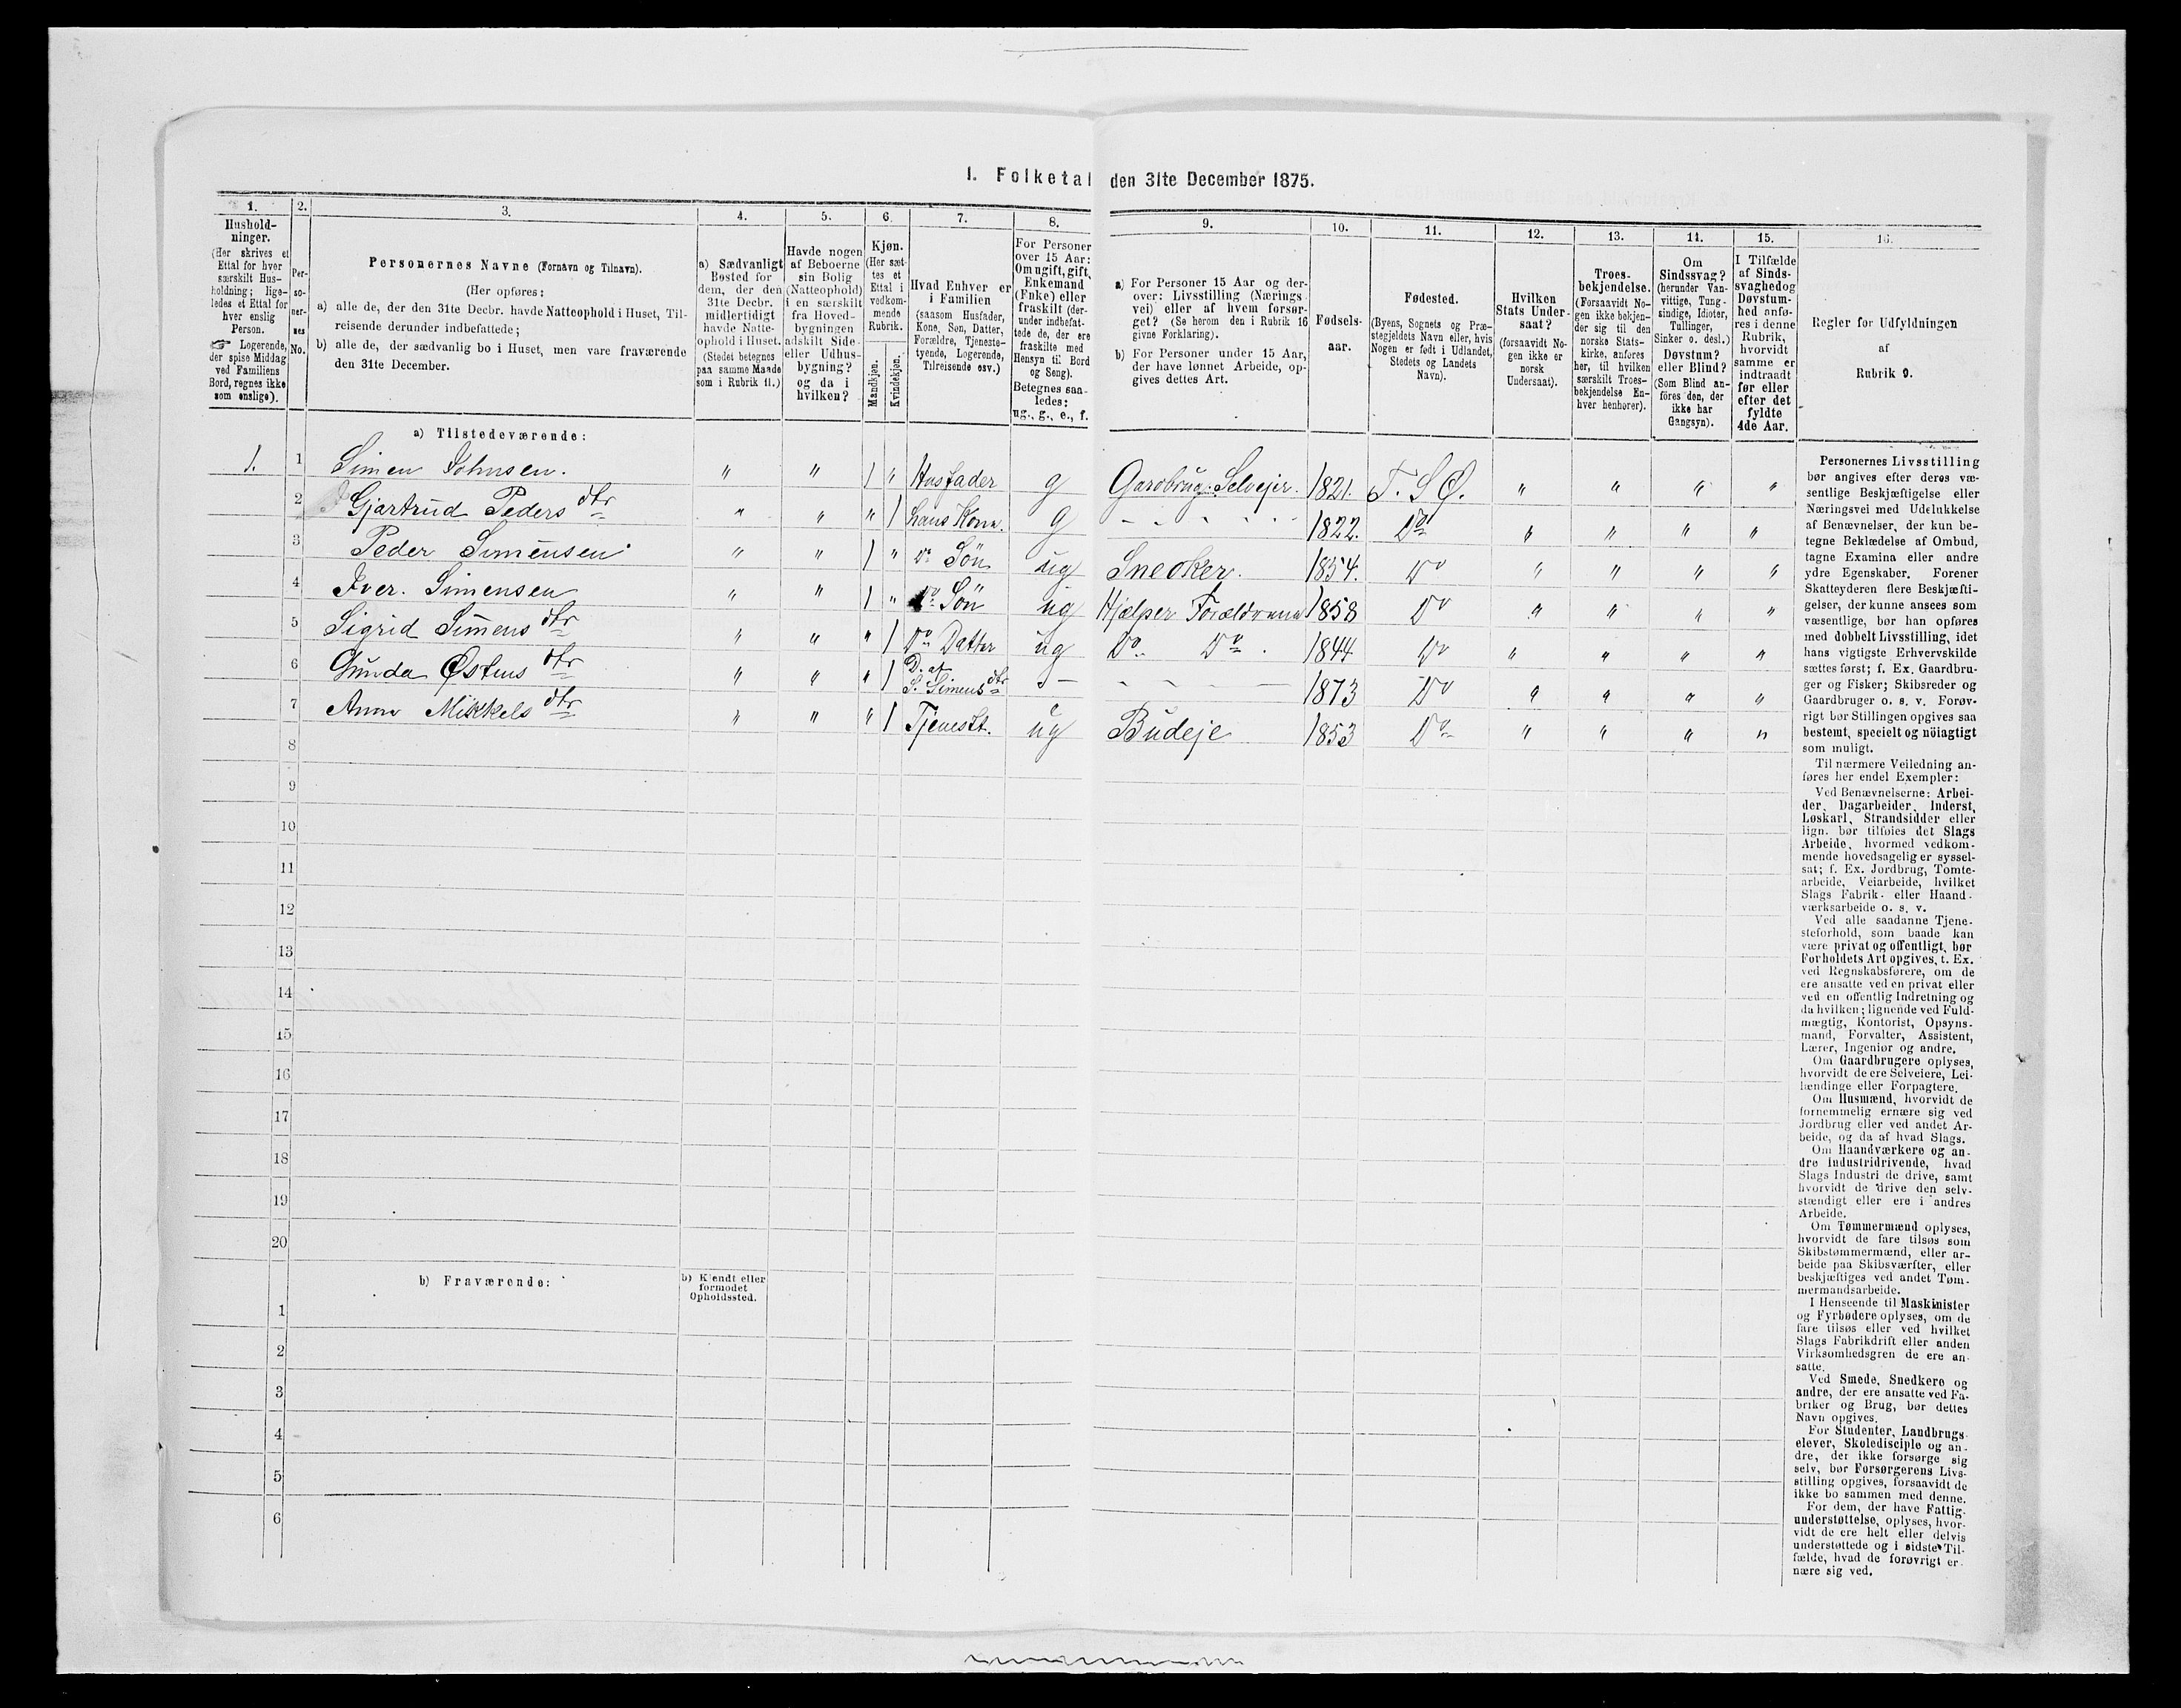 I. Folketal den 31te December 1875.
1.
Hushold-
ninger.
(Her skrives et
Ettal for hver
særskilt Hus-
holdning; lige-
ledes et Ettal for
hver enslig
Person.
☞ Logerende,
der spise Middag
ved Familiens
Bord, regnes ikke
som enslige).
2.
Per-
so-
ner-
nes
No.
3.
Personernes Navne (Fornavn og Tilnavn).
(Her opføres:
a) alle de, der den 31te Decbr. havde Natteophold i Huset, Til-
reisende derunder indbefattede;
b) alle de, der sædvanlig bo i Huset, men vare fraværende
den 31te December.
4.
a) Sædvanligt
Bosted for
dem, der den
31te Decbr.
midlertidigt
havde Natte-
ophold i Huset.
(Stedet betegnes
paa samme Maade
som i Rubrik 11.)
5.
Havde nogen
af Beboerne
sin Bolig
(Natteophold)
i en særskilt
fra Hoved-
bygningen
adskilt Side-
eller Udhus-
bygning?
og da i
hvilken?
6.
Kjøn.
(Her sæt-
tes et
Ettal i
vedkom-
mende
Rubrik.
Mandkjøn.
Kvindekjøn.
7.
Hvad Enhver er
i Familien
(saasom Husfader,
Kone, Søn, Datter,
Forældre, Tjeneste-
tyende, Logerende,
Tilreisende osv.)
8.
For Personer
over 15 Aar:
Om ugift, gift,
Enkemand
(Enke) eller
fraskilt (der-
under indbefat-
tede de, der ere
fraskilte med
Hensyn til Bord
og Seng).
Betegnes saa-
ledes:
ug., g., e., f.
9.
a) For Personer 15 Aar og der-
over: Livsstilling (Nærings-
vei) eller af hvem forsør-
get? (Se herom den i Rubrik 16
givne Forklaring).
b) For Personer under 15 Aar,
der have lønnet Arbeide, op-
gives dettes Art.
10.
Fødsels-
aar.
11.
Fødested.
(Byens, Sognets og Præ-
stegjeldets Navn eller, hvis
Nogen er født i Udlandet,
Stedets og Landets
Navn).
12.
Hvilken
Stats Under-
saat?
(forsaavidt No-
gen ikke er
norsk
Undersaat).
13.
Troes-
bekjendelse.
(Forsaavidt No-
gen ikke bekjen-
der sig til den
norske Stats-
kirke, anføres
her, til hvilken
særskilt Troes-
bekjendelse En-
hver henhører).
14.
Om
Sindssvag?
(herunder Van-
vittige, Tung-
sindige, Idioter,
Tullinger,
Sinker o. desl.)
Døvstum?
eller Blind?
(Som Blind an-
føres den, der
ikke har
Gangsyn).
15.
I Tilfælde
af Sinds-
svaghed og
Døvstum-
hed anfø-
res i denne
Rubrik,
hvorvidt
samme er
indtraadt
før eller
efter det
fyldte
4de Aar.
16.
Regler for Udfyldningen
af
Rubrik 9.
a) Tilstedeværende:
1. 1 Simen Johnsen. " " 1 " Husfader g Gardbrug. Selvejer. 1821. T. S Ø. " " " "
2 Gjartrud Peders dtr " " " 1 hans Kone. g 1822. Do " " " "
3 Peder Simensen " " 1 " Do Sön ug Snedker. 1854. Do " " " "
4 Iver. Simensen " " 1 " Do Sön ug Hjælper Forældrene 1858 Do " " " "
5 Sigrid Simens dtr " " " 1 Do Datter ug Do Do 1844 Do " " " "
6 Gunda Østens dtr " " " 1 D. af S. Simens dtr - 1873 Do " " " "
7 Anne Mikkels dtr " " " 1 Tjenest. ug Budeje 1853 Do " " " "
8
9
10
11
12
13
14
15
16
17
18
19
20
b) Fraværende:
b) Kjendt eller
formodet
Opholdssted.
1
2
3
4
5
6
Personernes Livsstilling
bør angives efter deres væ-
sentlige Beskjæftigelse eller
Næringsvei med Udelukkelse
af Benævnelser, der kun be-
tegne Beklædelse af Ombud,
tagne Examina eller andre
ydre Egenskaber. Forener
Skatteyderen flere Beskjæfti-
gelser, der kunne ansees som
væsentlige, bør han opføres
med dobbelt Livsstilling, idet
hans vigtigste Erhvervskilde
sættes først; f. Ex. Gaardbru-
ger og Fisker; Skibsreder og
Gaardbruger o. s. v. Forøv-
rigt bør Stillingen opgives saa
bestemt, specielt og nöiagtigt
som muligt.
Til nærmere Veiledning an-
føres her endel Exempler:
Ved Benævnelserne: Arbei-
der, Dagarbeider, Inderst,
Løskarl, Strandsidder eller
lign. bør tilføies det Slags
Arbeide, hvormed vedkom-
mende hovedsagelig er syssel-
sat; f. Ex. Jordbrug, Tomte-
arbeide, Veiarbeide, hvilket
Slags Fabrik- eller Haand-
værksarbeide o. s. v.
Ved alle saadanne Tjene-
steforhold, som baade kan
være privat og offentligt, bør
Forholdets Art opgives, t. Ex.
ved Regnskabsførere, om de
ere ansatte ved en privat eller
ved en offentlig Indretning og
da hvilken; lignende ved Fuld-
mægtig, Kontorist, Opsyns-
mand, Forvalter, Assistent,
Lærer, Ingeniør og andre.
Om Gaardbrugere oplyses,
hvorvidt de ere Selveiere, Lei-
lændinge eller Forpagtere.
Om Husmænd, hvorvidt de
fornemmelig ernære sig ved
Jordbrug eller ved andet Ar-
beide, og da af hvad Slags.
Om Haandværkere og an-
dre Industridrivende, hvad
Slags Industri de drive, samt
hvorvidt de drive den selv-
stændigt eller ere i andres
Arbeide.
Om Tømmermænd oplyses,
hvorvidt de fare tilsøs som
Skibstømmermænd, eller ar-
beide paa Skibsværfter, eller
beskjæftiges ved andet Tøm-
mermandsarbeide.
I Henseende til Maskinister
og Fyrbødere oplyses, om de
fare tilsøs eller ved hvilket
Slags Fabrikdrift eller anden
Virksomhedsgren de ere an-
satte.
Ved Smede, Snedkere og
andre, der ere ansatte ved Fa-
briker og Brug, bør dettes
Navn opgives.
For Studenter, Landbrugs-
elever, Skoledisciple og an-
dre, der ikke forsørge sig
selv, bør Forsørgerens Livs-
stilling opgives, forsaavidt de
ikke bo sammen med denne.
For dem, der have Fattig-
understøttelse, oplyses, hvor-
vidt de ere helt eller delvis
understøttede og i sidste Til-
fælde, hvad de forøvrigt er-
nære sig ved.